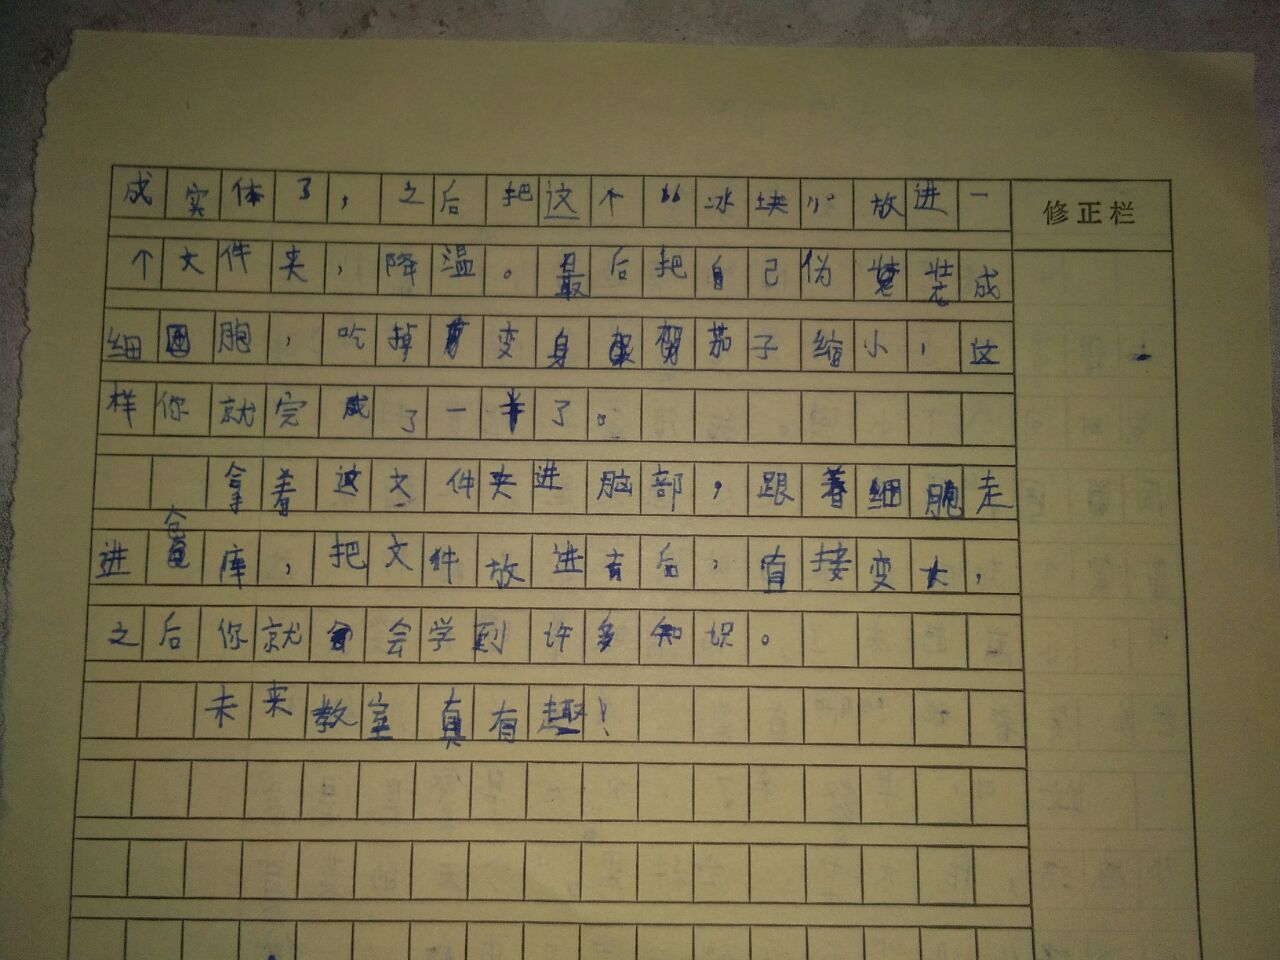 成实体了，之后把这个“冰块”放进一
修正栏
个文件夹，降温。最后把自己伪装成
细胞，吃掉变身茄子缩小，这
样你就完成了一半了。
拿着这文件夹进脑部，跟着细胞走
进仓库，把文件放进去后，直接变大，
之后你就会学到许多知识。
未来教室真有趣！